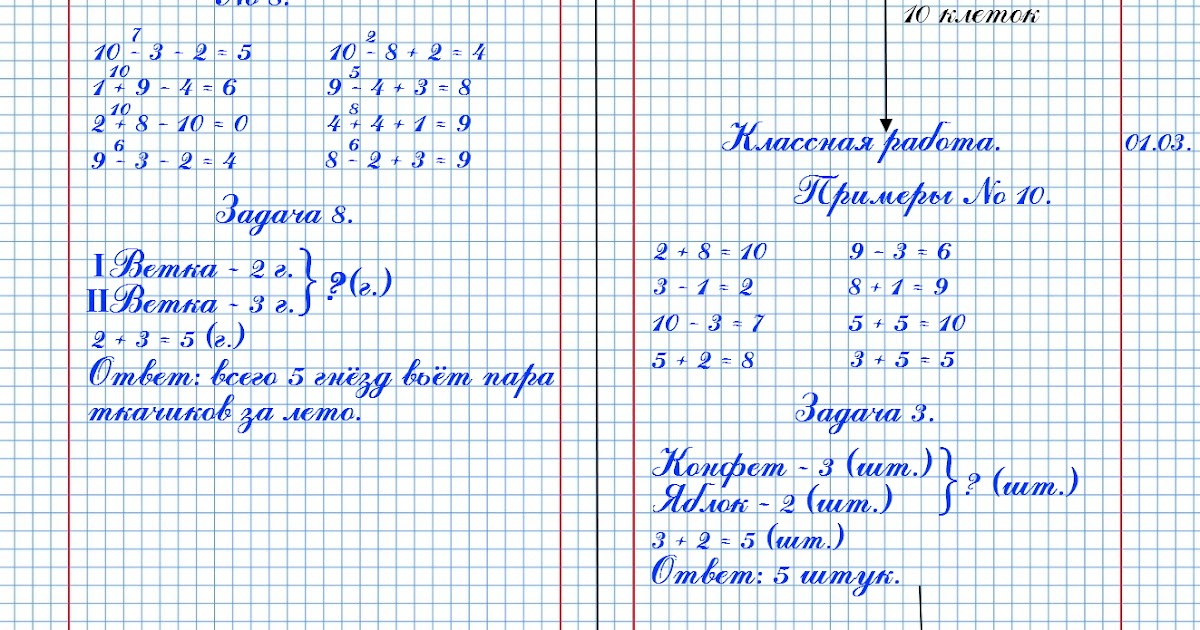 № 8.
7 2
10 - 3 - 2 = 5 10 - 8 + 2 = 4
10 5
1 + 9 - 4 = 6 9 - 4 + 3 = 8
10 8
2 + 8 - 10 = 0 4 + 4 + 1 = 9
6 6
9 - 3 - 2 = 4 8 - 2 + 3 = 9
Задача 8.
I Ветка - 2 г.
II Ветка - 3 г. } ? (г.)
2 + 3 = 5 (г.)
Ответ: всего 5 гнёзд вьёт пара
ткачиков за лето.
10 клеток
Классная работа. 01.03.
Примеры № 10.
2 + 8 = 10 9 - 3 = 6
3 - 1 = 2 8 + 1 = 9
10 - 3 = 7 5 + 5 = 10
5 + 2 = 8 3 + 5 = 5
Задача 3.
Конфет - 3 (шт.)
Яблок - 2 (шт.) } ? (шт.)
3 + 2 = 5 (шт.)
Ответ: 5 штук.